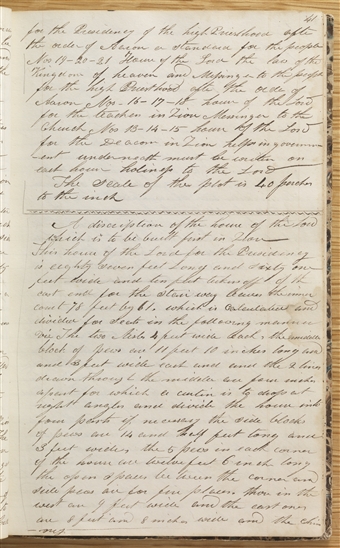 41
for the Presidency of the high Priesthood after
the order of Aaron a standard for the people
Nos 19-20-21 House of the Lord the law of the
Kingdom of heaven and Mesenger to the people
for the high Priesthood after the order of
Aaron Nos-16-17-18- house of the Lord
for the teachers in Zion Mesinger to the
Church Nos 13-14-15 House of the Lord
for the Deacon in Zion helps in governm
ent underneath must be writen on
each house holiness to the Lord
The Scale of the plot is 40 perches
to the inch
A discription of the house of the Lord
which is to be built first in Zion
This house of the Lord for the Presidency
is eighty seven feet long and sixty one
feet wide and ten feet taken off of the
east end for the stair way leaves the inner
court 78 feet by 61. which is calculated and
divided for seats in the following manner
viz The two Aisles 4 feet wide each, the middle
block of pews are 11 feet 10 inches long and
and 3 feet wide each and and the 2 lines
drawn through the middle are four inches
apart for which a curtin is to drop at
right angles and divide the house into
four parts if necessary the side block
of pews are 14 and half feet long and
3 feet wide, the 5 pews in each corner
of the house are twelve feet 6 inch long
the open spaces between the corner and
side pews are for fire places those in the
west are 9 feet wide and the east ones
are 8 feet and 8 inches wide and the chim
-neys